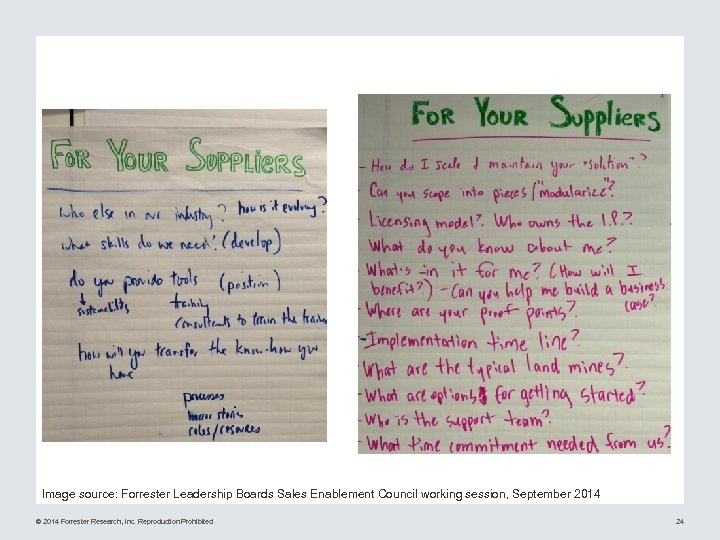 FOR YOUR SUPPLIERS
who else in our industry? how is it evolving?
what skills do we need? (develop)
do you provide tools (position)
sustainability
training
consultants to train the trainer
how will you transfer the know-how you
have
processes
horror stories
roles/resources
FOR YOUR SUPPLIERS
- How do I scale & maintain your "solution"?
- Can you scope into pieces/"modularize"?
- Licensing model? Who owns the I.P.?
What do you know about me?
- What's in it for me? (How will I
benefit?) - Can you help me build a business
case?
- Where are your proof points?
- Implementation time line?
- What are the typical land mines?
- What are options for getting started?
- Who is the support team?
- What time commitment needed from us?
Image source: Forrester Leadership Boards Sales Enablement Council working session, September 2014
© 2014 Forrester Research, Inc. Reproduction Prohibited
24